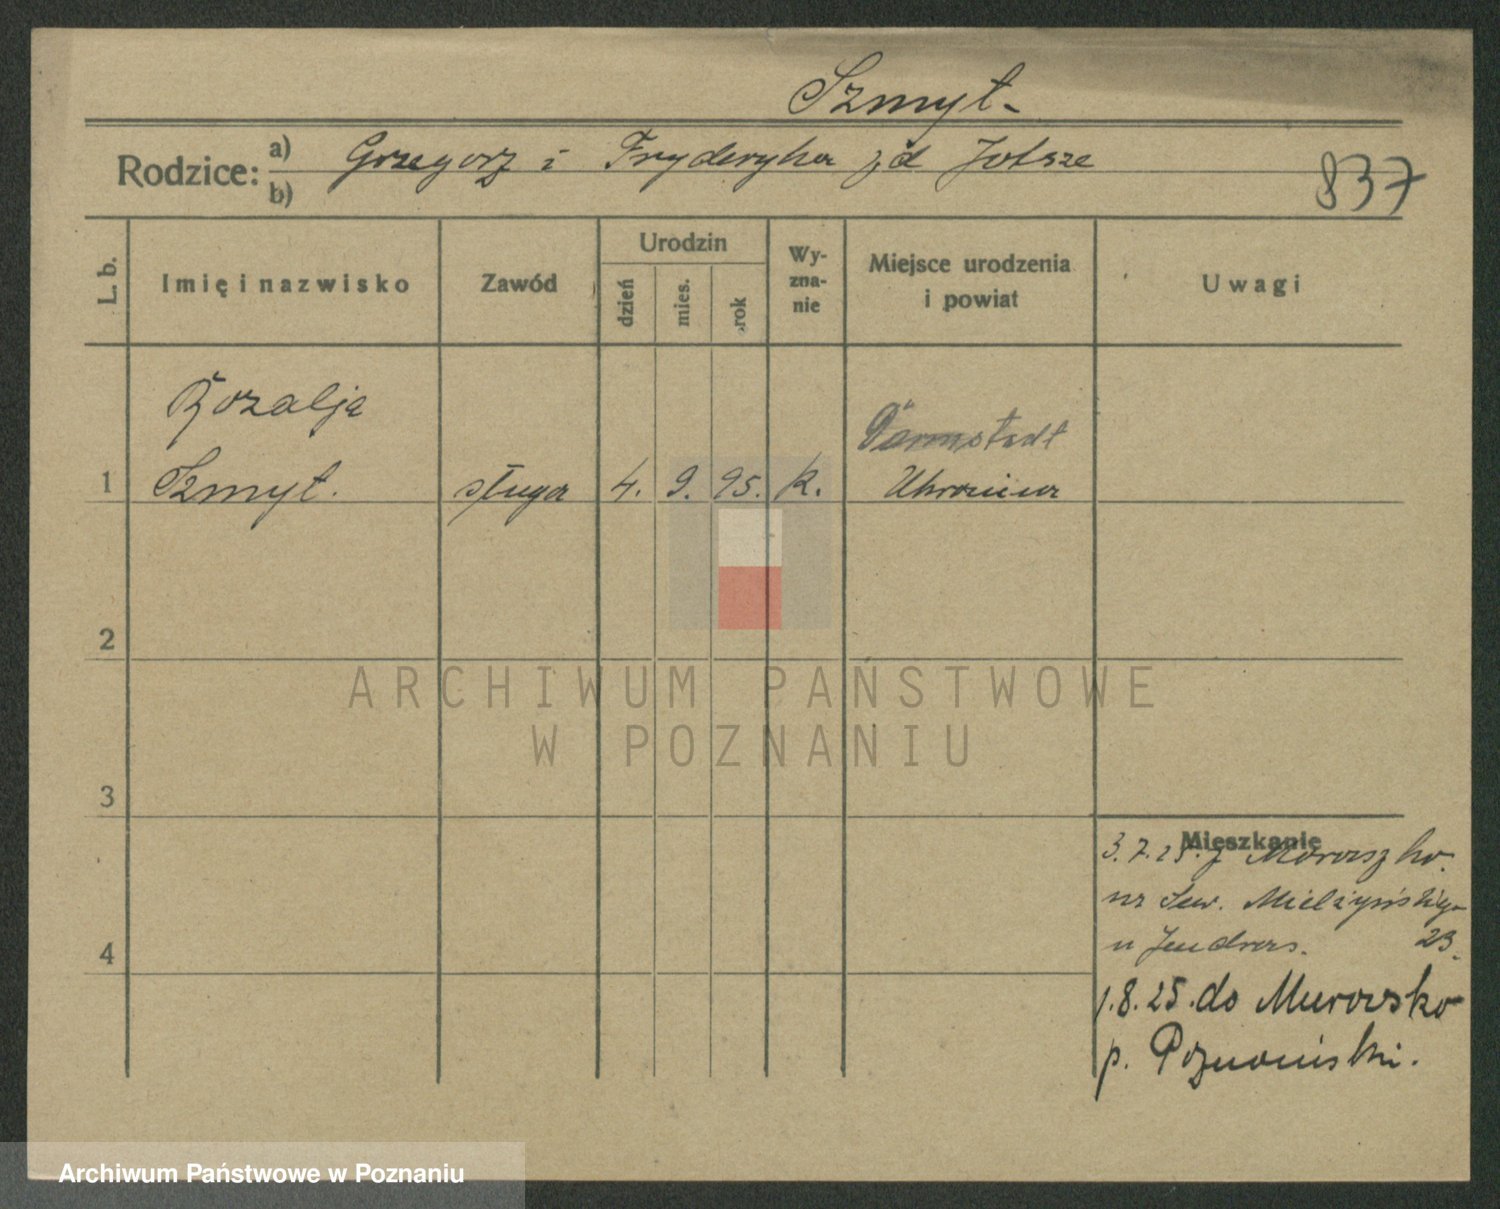 Szmyt.
Rodzice: a) Grzegorz i Fryderyka z d Jotsze
b)
837
L. b.
Imię i nazwisko
Zawód
Urodzin
dzień
mies.
rok
Wy-
zna-
nie
Miejsce urodzenia
i powiat
Uwagi
Rozalja
Darmstadt
1 Szmyt. sługa 4. 9. 95. k. Ukraina
2
ARCHIWUM PAŃSTWOWE
W POZNANIU
3
Mieszkanie
3.7.25. z Morasz ko.
na Sew. Mielżyńskiego
4 u Jendras. 23.
1.8.25. do Murowsko
p. Poznański.
Archiwum Państwowe w Poznaniu